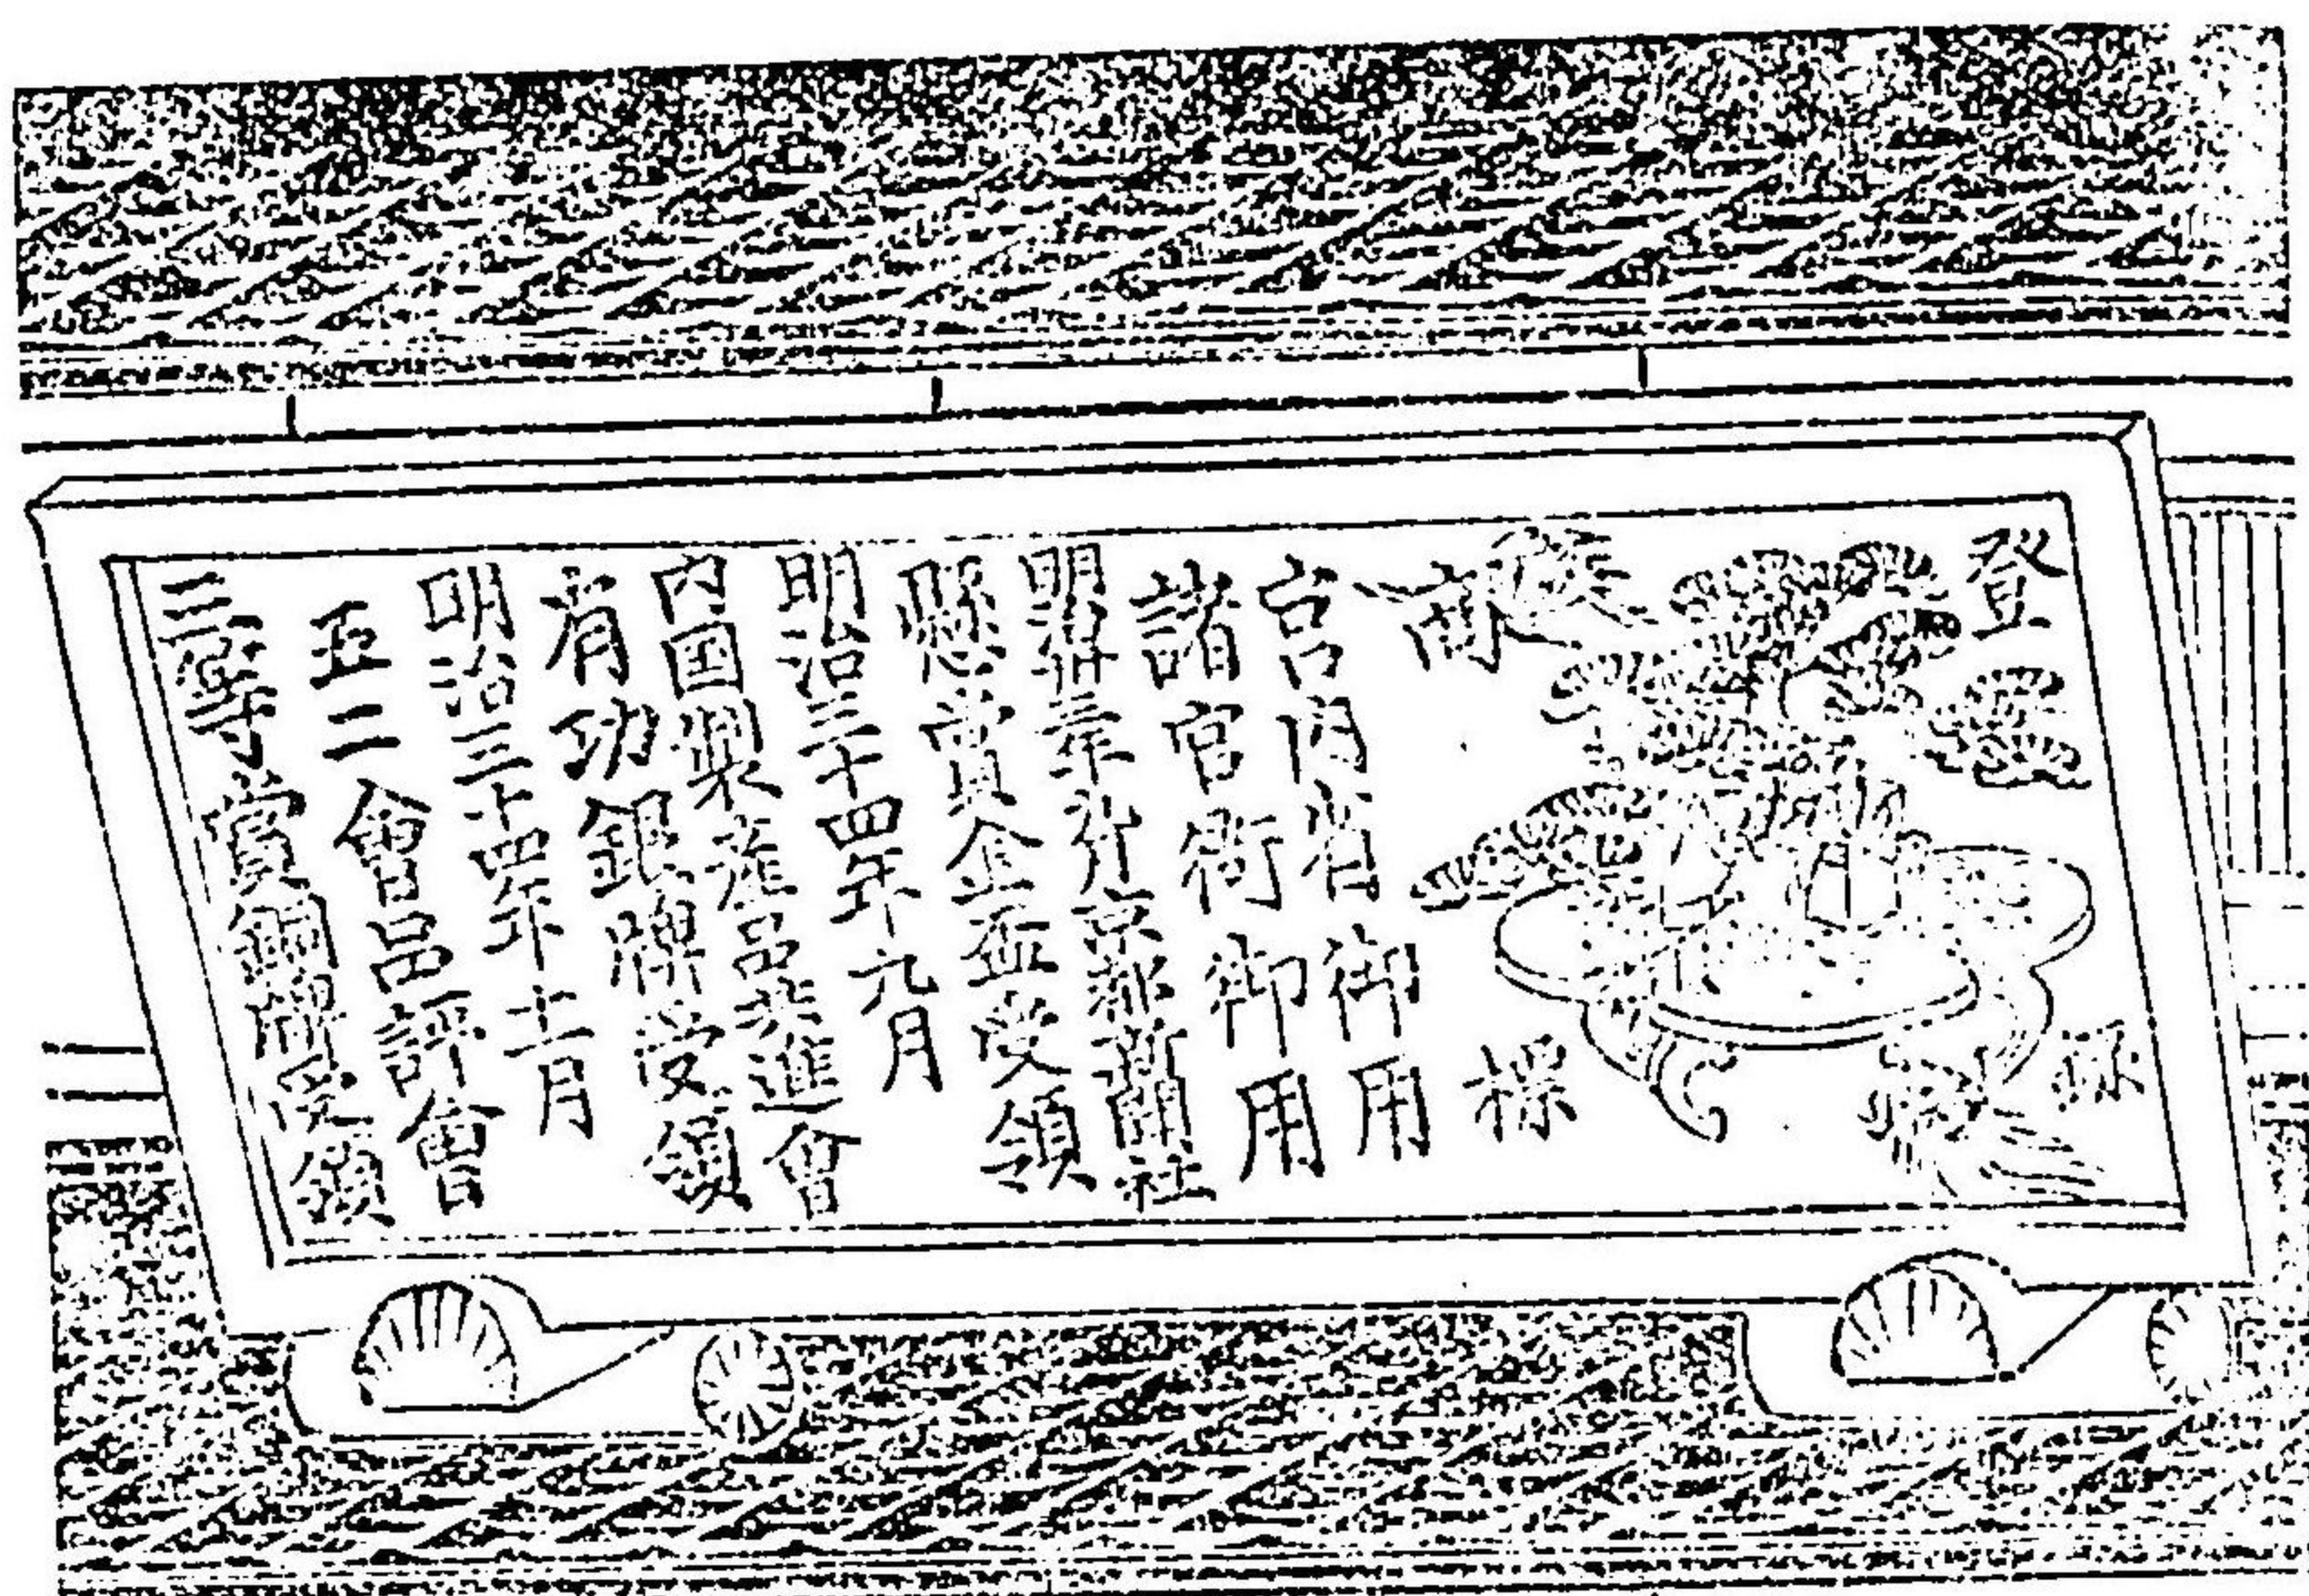 登録
商標
宮内省御用
諸官衙御用
明治卅年於京都蘭社
懸賞金盃受領
明治三十四年九月
内国製産品共進会
有功銀牌受領
明治三十四年十一月
五二會品評會
三等賞銅牌受領